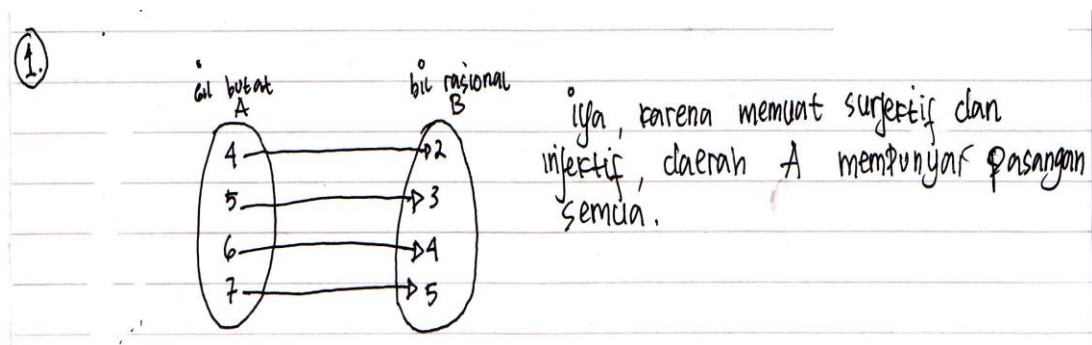 1.
bil bulat
bil rasional
A
B
4
2
5
3
6
4
7
5
iya, karena memuat surjektif dan
injektif, daerah A mempunyai pasangan
semua.